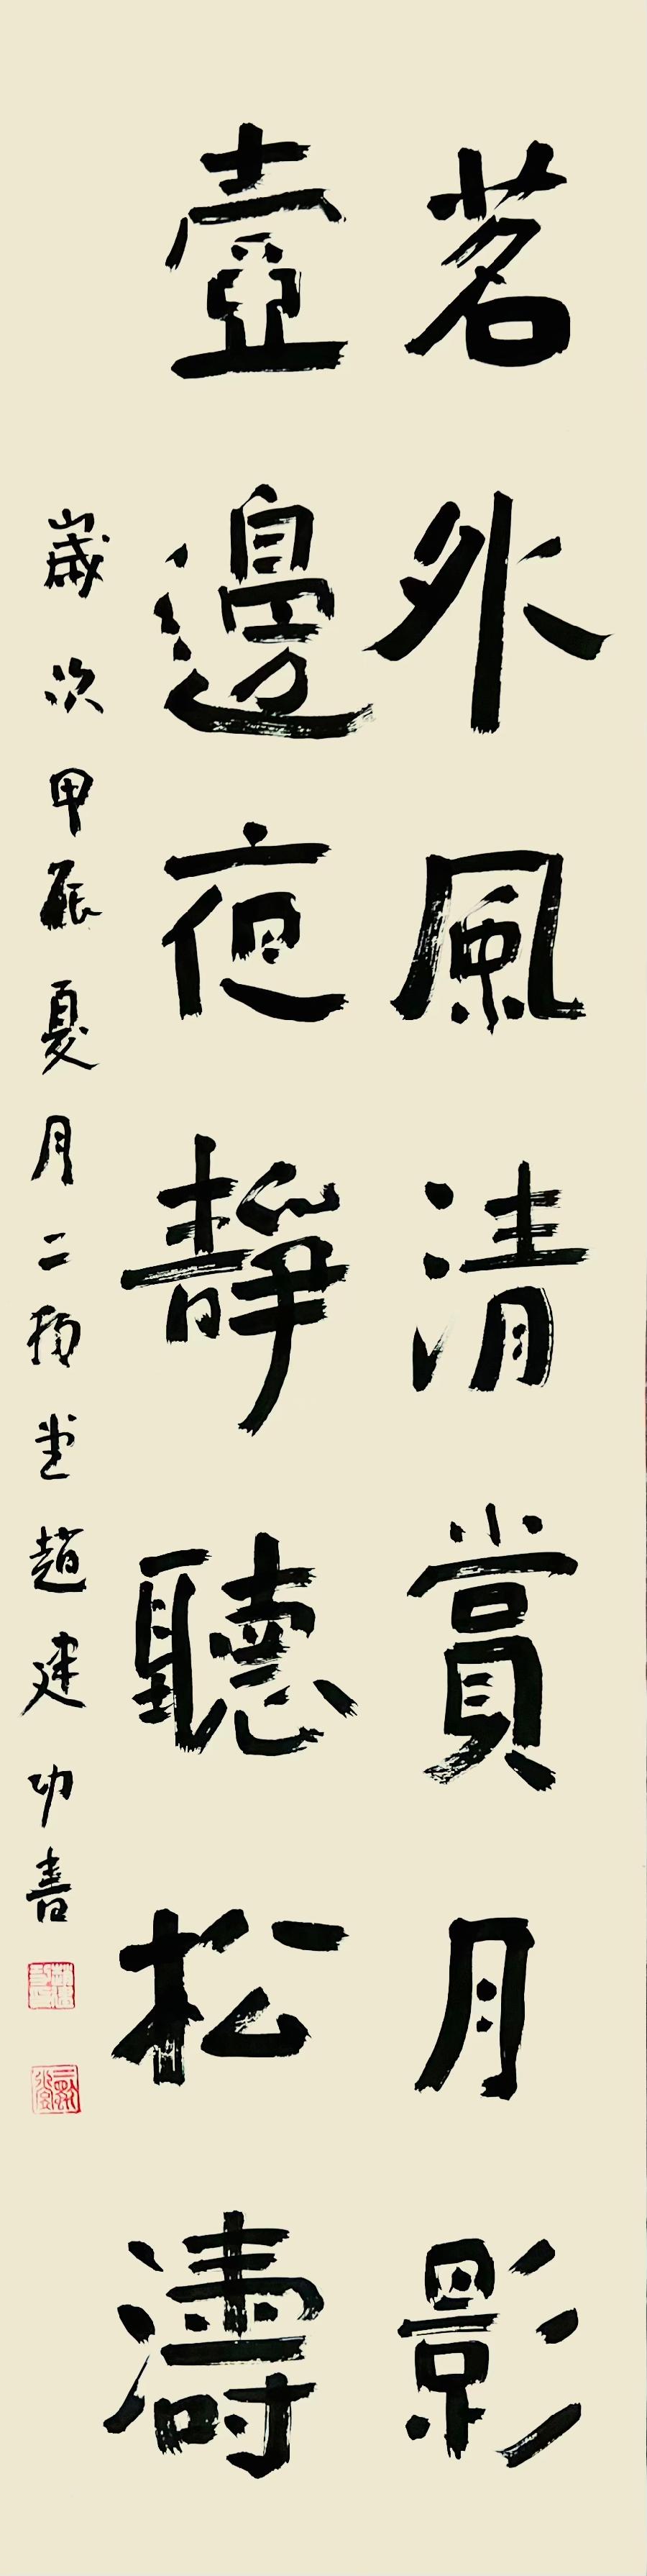 茗外風清賞月影
壺邊夜靜聽松濤
歲次甲辰夏月二楊堂趙建功書